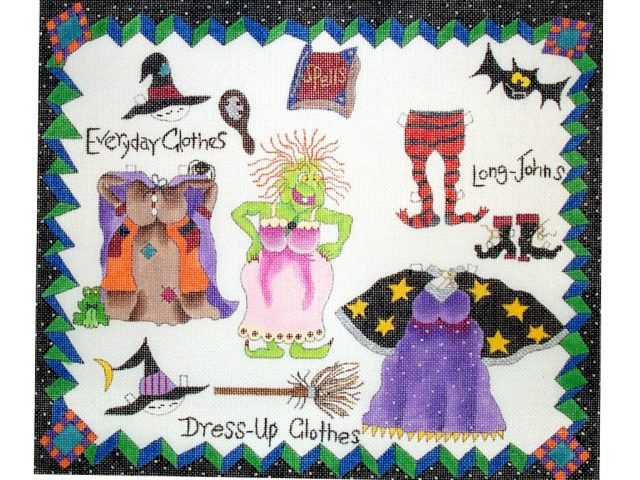 Spells
Everyday Clothes
Long-Johns
Dress-Up Clothes